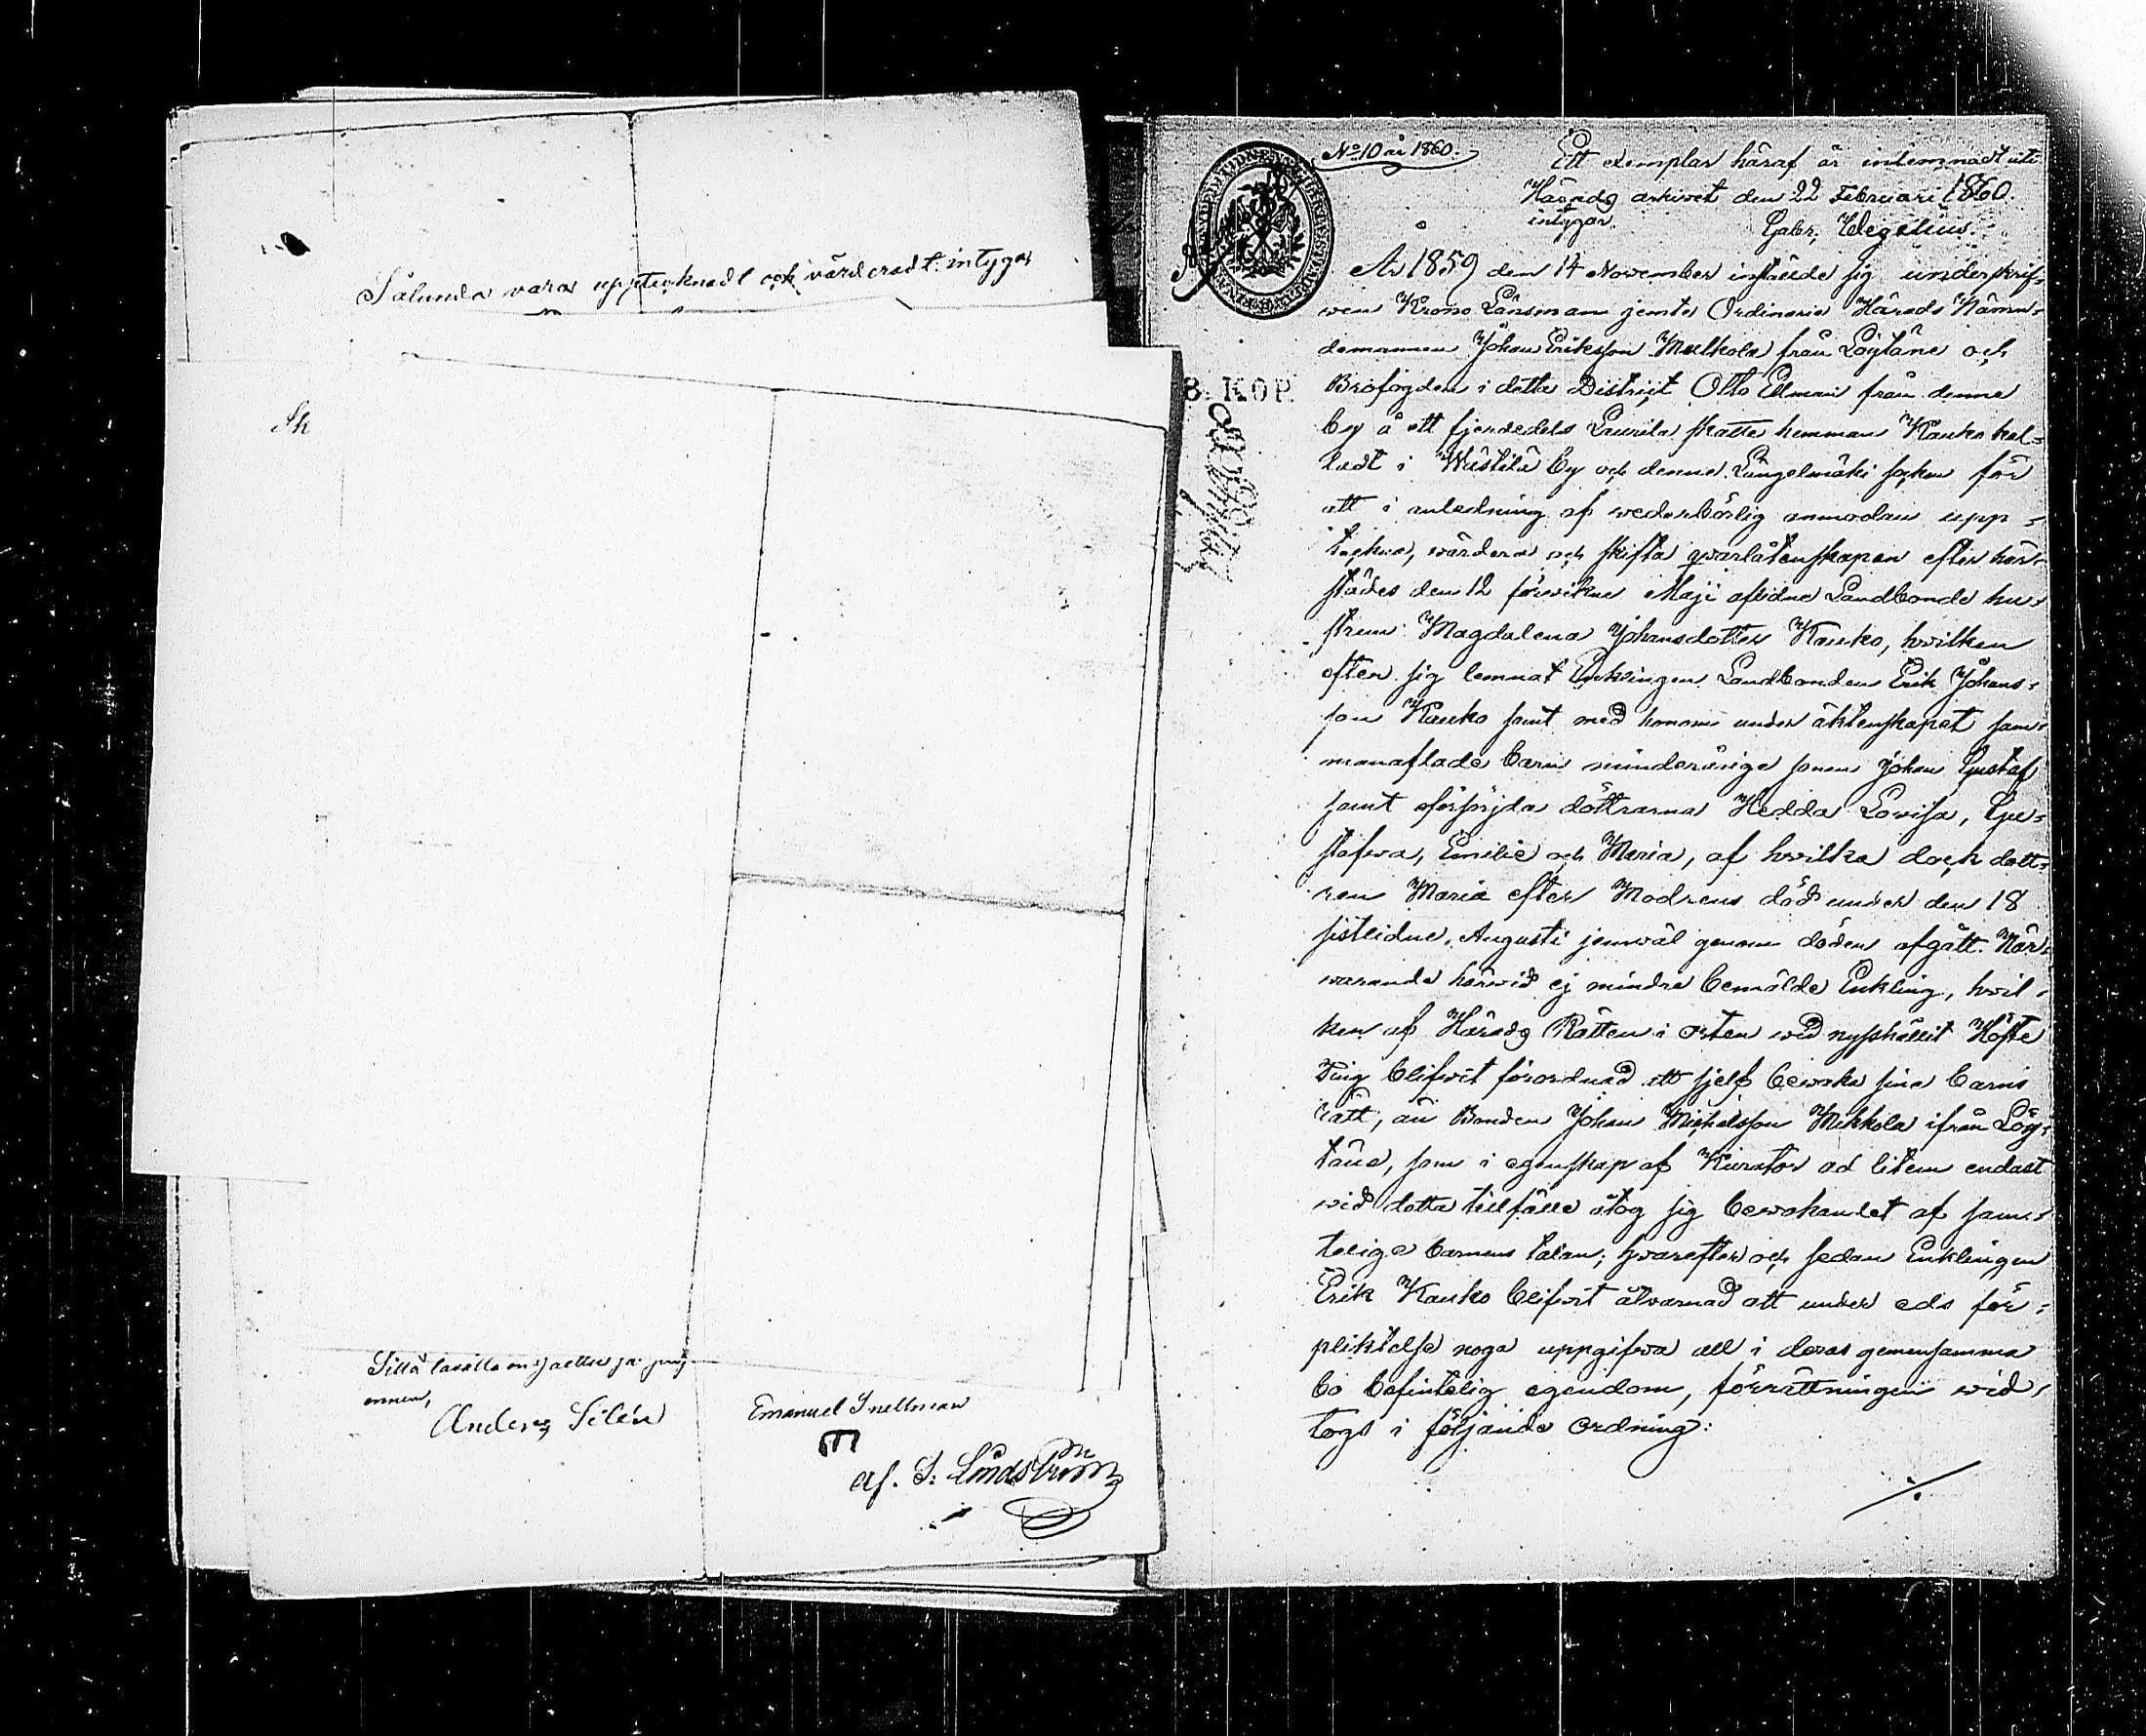 Sålunda vara upptecknadt och värderadt intygar
Sillä tavalla on jaettu ja
ennen,
Anders Silén
Emanuel Snellman
af. S: Lindström
No 10 år 1860.
Ett exemplar häraf är inlemnadt uti
Härads arkivet den 22 Februari 1860.
intygar.
Gabr. Wegelius.
8. KOP.
År 1859 den 14 November instälde sig underskrif-
wen Krono Länsman jemte Ordinarie Härads Nämn-
demannen Johan Eriksson Mulkola från Löytäne och
Brofogden i detta District Otto Edman från denna
by å ett fjerdedels Laurila skatte hemman Kauko kal-
ladt i Wästilä by och denna Längelmäki socken för
att i anledning af wederbörlig anmodan upp-
tekna, wärdera och skifta qwarlåtenskapen efter här-
städes den 12 förwikne Maji aflidne Landbonde hu-
strun Magdalena Johansdotter Kauko, hwilken
efter sig lemnat Enklingen Landbonden Erik Johans-
son Kauko samt med honom under äktenskapet sam-
manaflade barn minderårige sonen Johan Gustaf
samt oförsörjda döttrarna Hedda Lovisa, Gu-
stafwa, Emilie och Maria, af hwilka dock dott-
ren Maria efter Modrens död under den 18
sistlidne Augusti jemwäl genom döden afgått. När-
warande härwid ej mindre bemälde Enkling, hwil-
ken af Härads Rätten i orten wid nysshållit Höste
Ting blifwit förordnad att sjelf bewaka sina barns
rätt, än Bonden Johan Michelsson Mikkola ifrån Löy-
täne, som i egenskap af Kurator ad litem endast
wid detta tillfälle åtog sig bewakandet af sam-
telige barnens talan; hwarefter och sedan Enklingen
Erik Kauko blifwit åtwarnad att under eds för-
pliktelse noga uppgifwa all i deras gemensamma
bo befintelig egendom, förrättningen wid-
togs i följande ordning:
./.